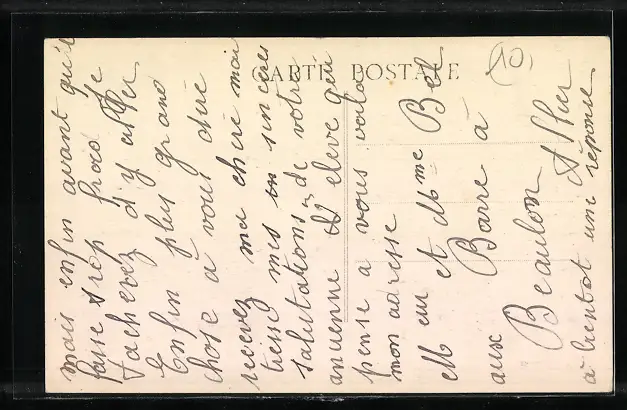 CARTE POSTALE
10
mais enfin avant qu'il
fasse trop froid je
tacherez d'y aller
Enfin plus grand
chose à vous dire
recevez ma chère mai
tresse mes sincères
salutations de votre
ancienne élève qui
pense a vous voila
mon adresse
M eur et Mme Bet
Barre à
aux Beaulon
Allier
à bientot une réponse